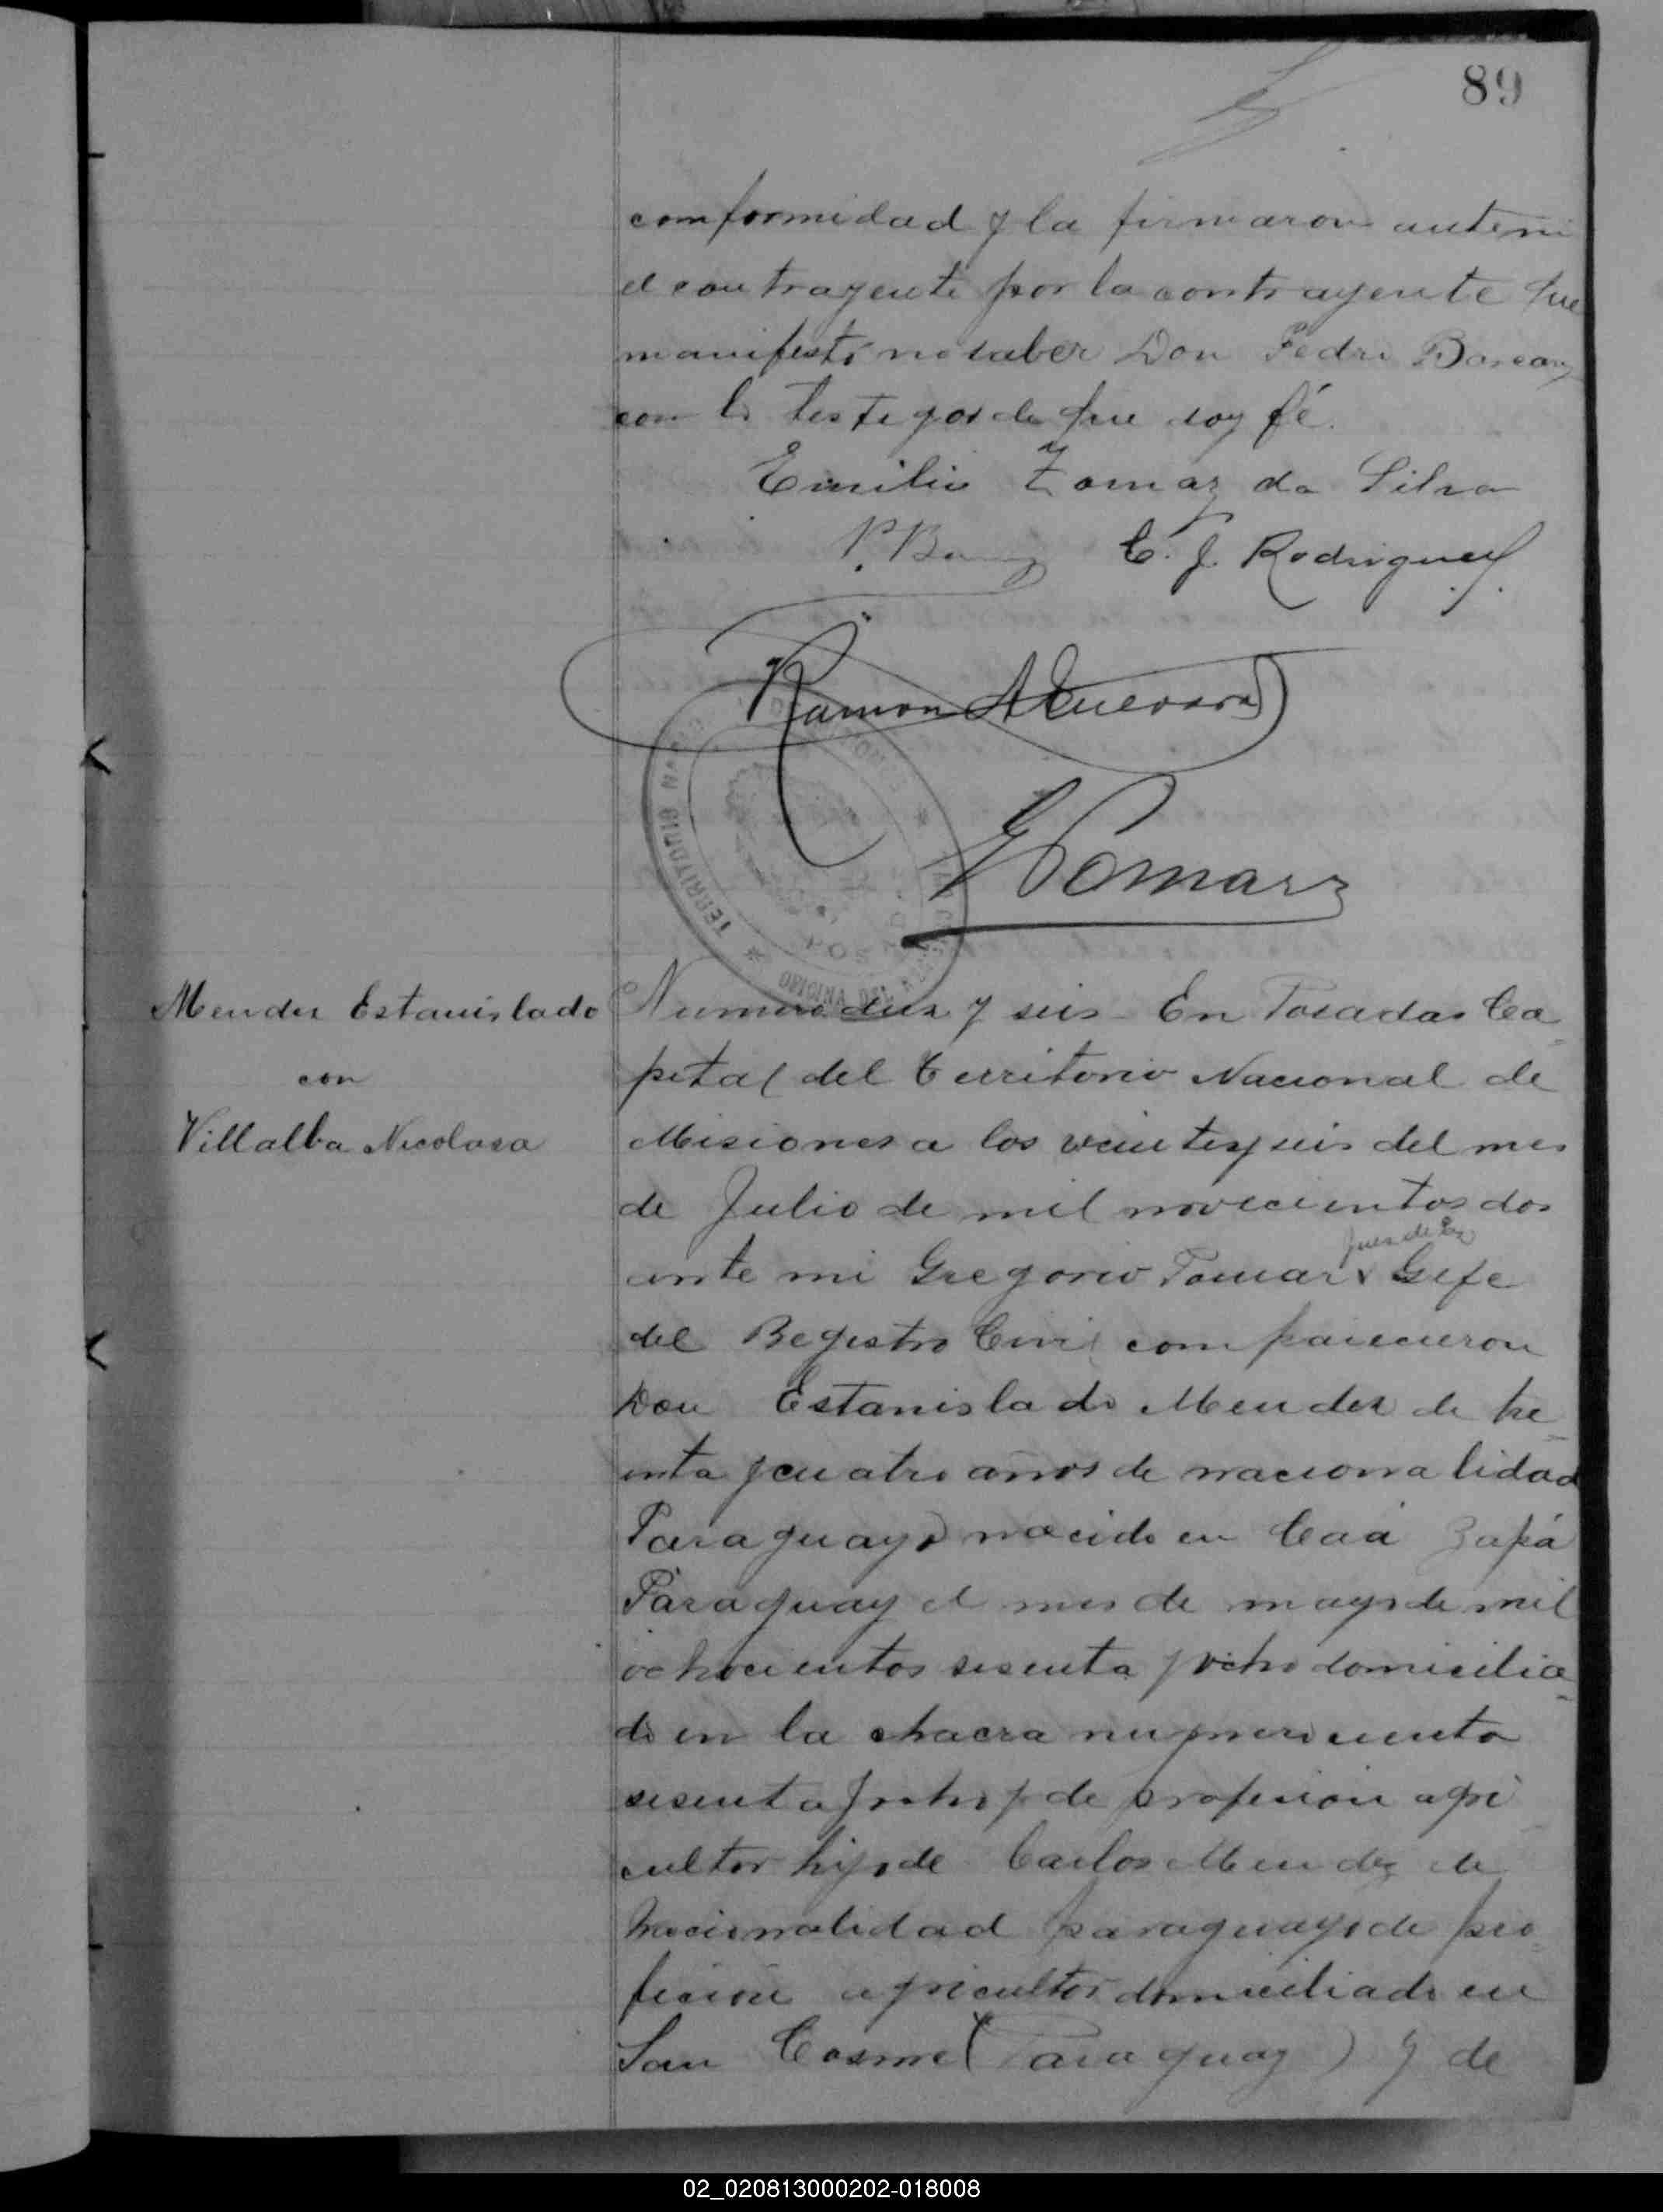 89
conformidad y la firmaron ante mi
el contrayente por la contrayente que
manifestó no saber Don Pedro
con los testigos de que doy fé.
Emilio Tomaz da Silva
C. J. Rodriguez
Ramon A Guevara
TERRITORIO
G Pomar
Mendez Estanislado
con
Villalba Nicolasa
Numero diez y seis En Posadas Ca
pital del Territorio Nacional de
Misiones a los veintiy seis del mes
de Julio de mil novecientos dos
Juez de Paz
ante mi Gregorio Pomar Gefe
del Registro Civil comparecieron
Don Estanislado Mendez de tre
inta y cuatro años de nacionalidad
Paraguayo nacido en Caá Zapá
Paraguay el mes de mayo de mil
ochocientos sesenta y ocho domicilia
do en la chacra numero ciento
sesenta y ocho y de profesion agri
cultor hijo de Carlos Mendez de
Nacionalidad paraguayo de pro
fesion agricultor domiciliado en
San Cosme (Paraguay) y de
02_020813000202-018008